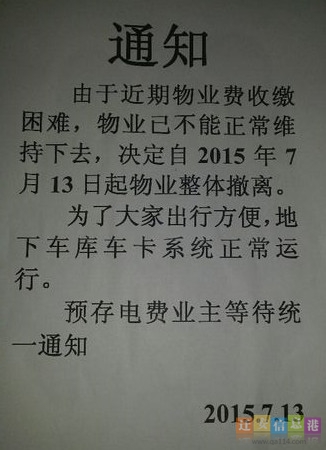 通知
由于近期物业费收缴
困难，物业已不能正常维
持下去，决定自 2015 年 7
月 13 日起物业整体撤离。
为了大家出行方便，地
下车库车卡系统正常运
行。
预存电费业主等待统
一通知
2015.7.13